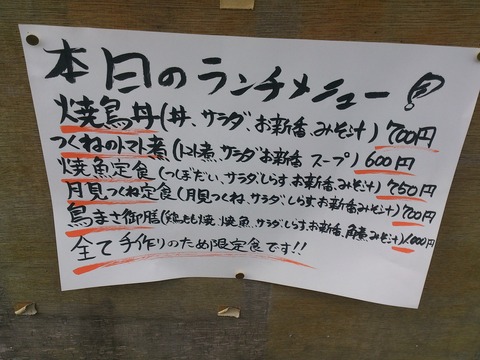 本日のランチメニュー!
焼鳥丼(丼、サラダ、お新香、みそ汁) 700円
つくねのトマト煮(トマト煮、サラダ、お新香 スープ) 600円
焼魚定食(つぼだい、サラダ、しらす、お新香、みそ汁) 750円
月見つくね定食(月見つくね、サラダ、しらす、お新香、みそ汁) 700円
鳥まさ御膳(鶏もも焼、焼魚、サラダ、しらす、お新香、角煮、みそ汁) 1,000円
全て手作りのため限定食です!!